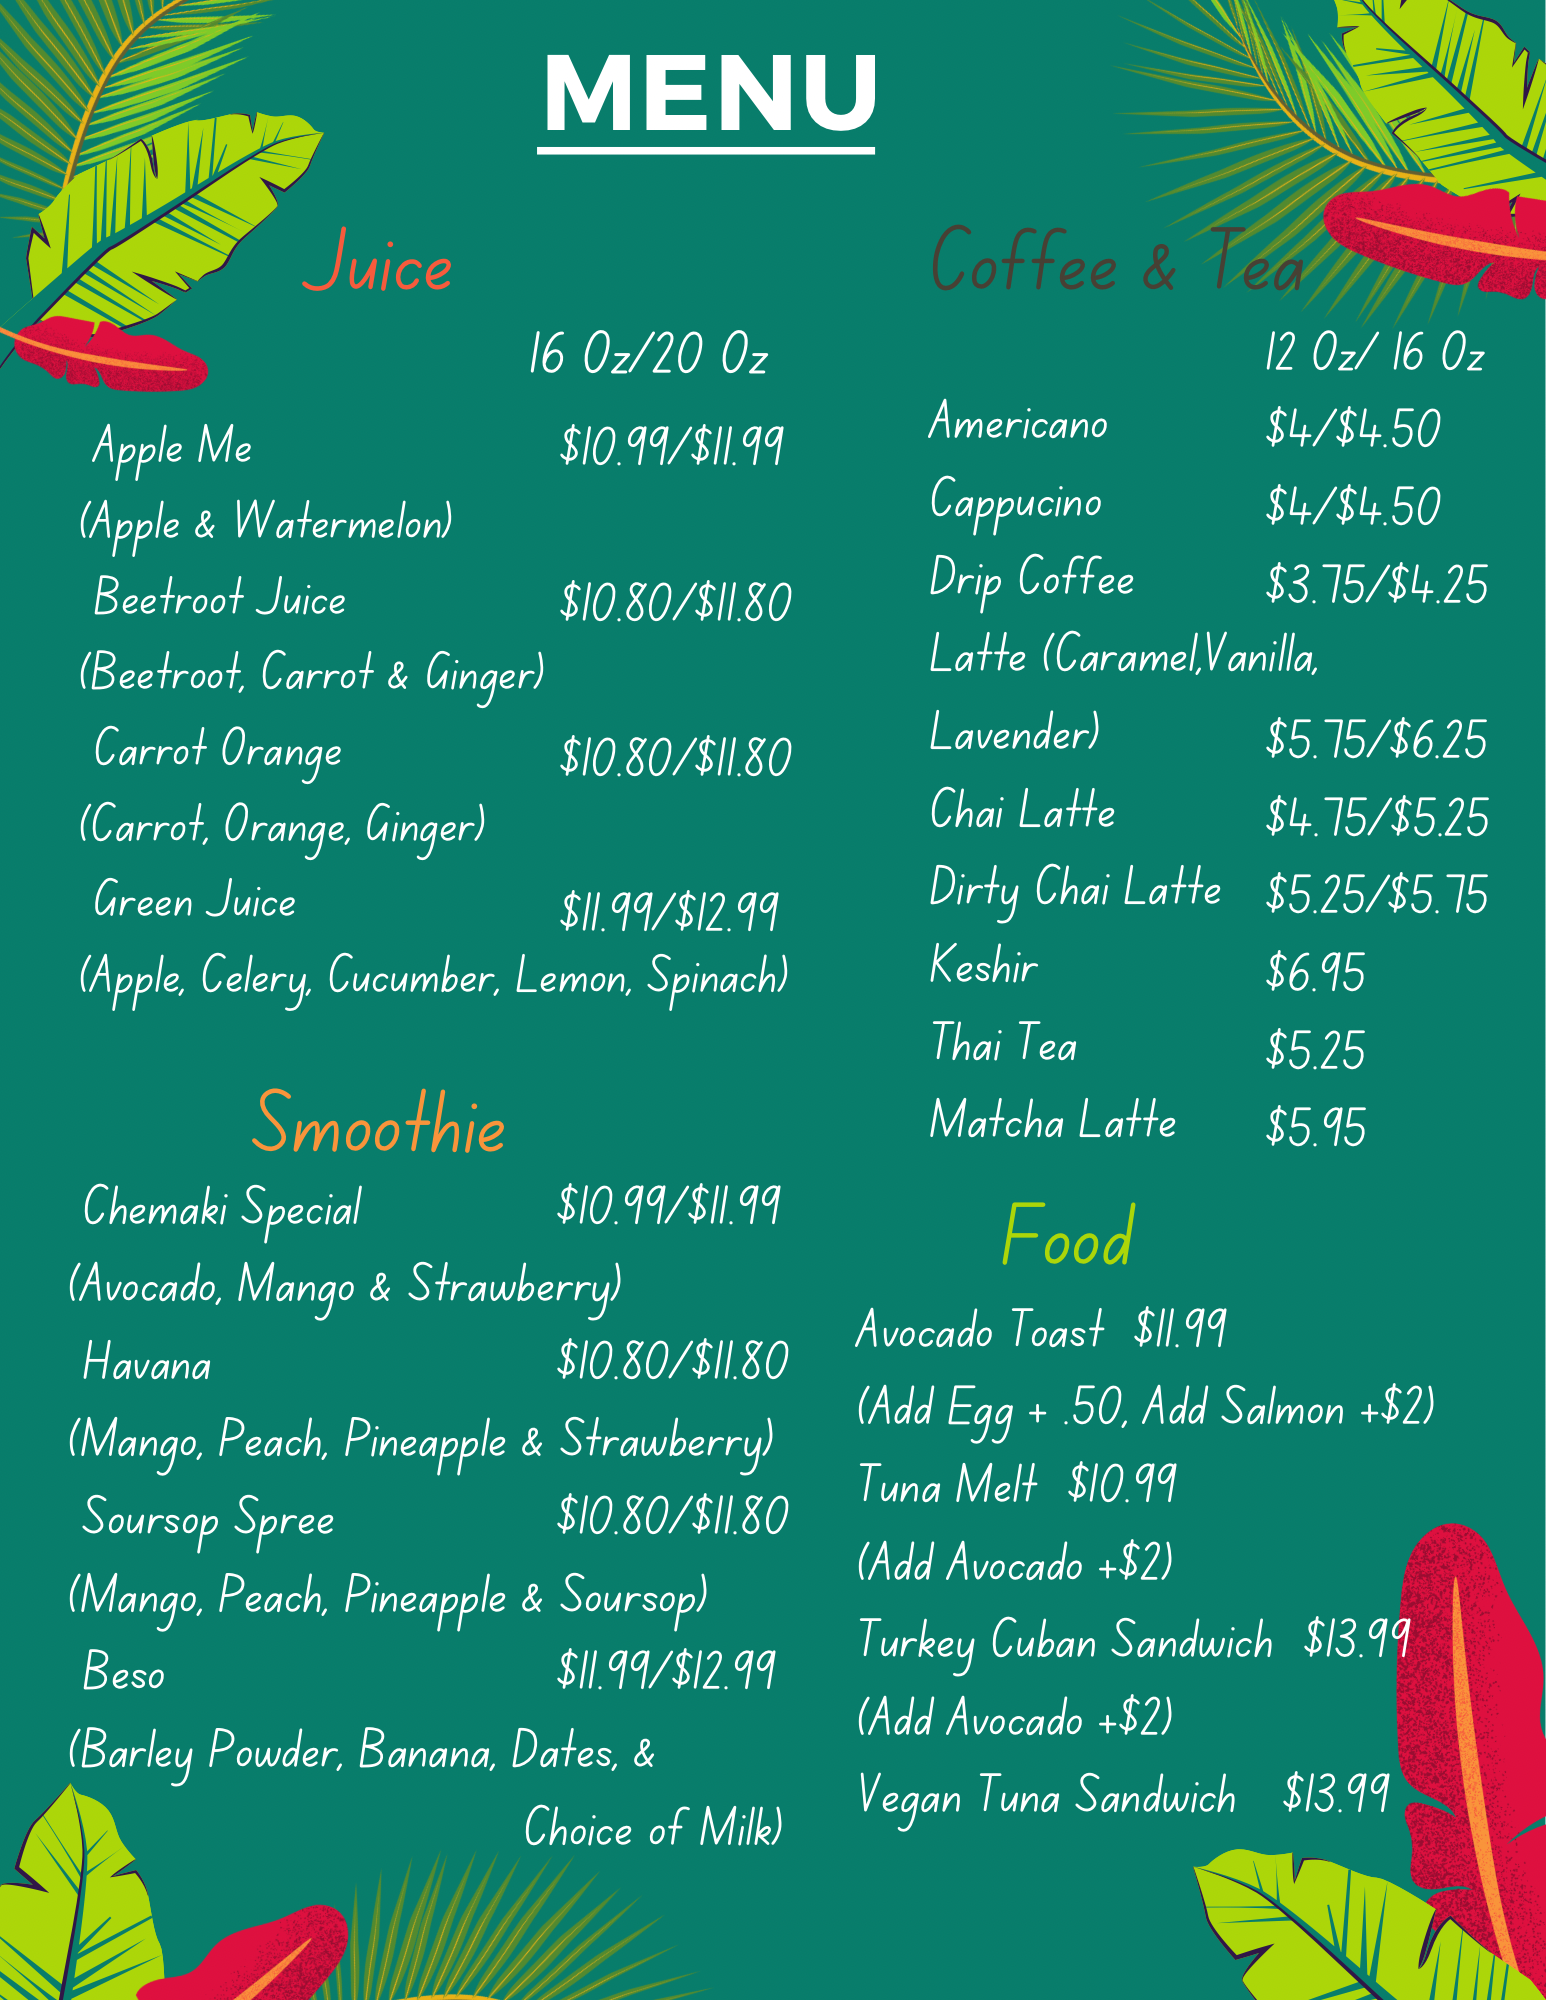 MENU
Juice
16 Oz/20 Oz
Apple Me $10.99/$11.99
(Apple & Watermelon)
Beetroot Juice $10.80/$11.80
(Beetroot, Carrot & Ginger)
Carrot Orange $10.80/$11.80
(Carrot, Orange, Ginger)
Green Juice $11.99/$12.99
(Apple, Celery, Cucumber, Lemon, Spinach)
Smoothie
Chemaki Special $10.99/$11.99
(Avocado, Mango & Strawberry)
Havana $10.80/$11.80
(Mango, Peach, Pineapple & Strawberry)
Soursop Spree $10.80/$11.80
(Mango, Peach, Pineapple & Soursop)
Beso $11.99/$12.99
(Barley Powder, Banana, Dates, &
Choice of Milk)
Coffee & Tea
12 Oz/ 16 Oz
Americano $4/$4.50
Cappucino $4/$4.50
Drip Coffee $3.75/$4.25
Latte (Caramel,Vanilla,
Lavender) $5.75/$6.25
Chai Latte $4.75/$5.25
Dirty Chai Latte $5.25/$5.75
Keshir $6.95
Thai Tea $5.25
Matcha Latte $5.95
Food
Avocado Toast $11.99
(Add Egg + .50, Add Salmon +$2)
Tuna Melt $10.99
(Add Avocado +$2)
Turkey Cuban Sandwich $13.99
(Add Avocado +$2)
Vegan Tuna Sandwich $13.99